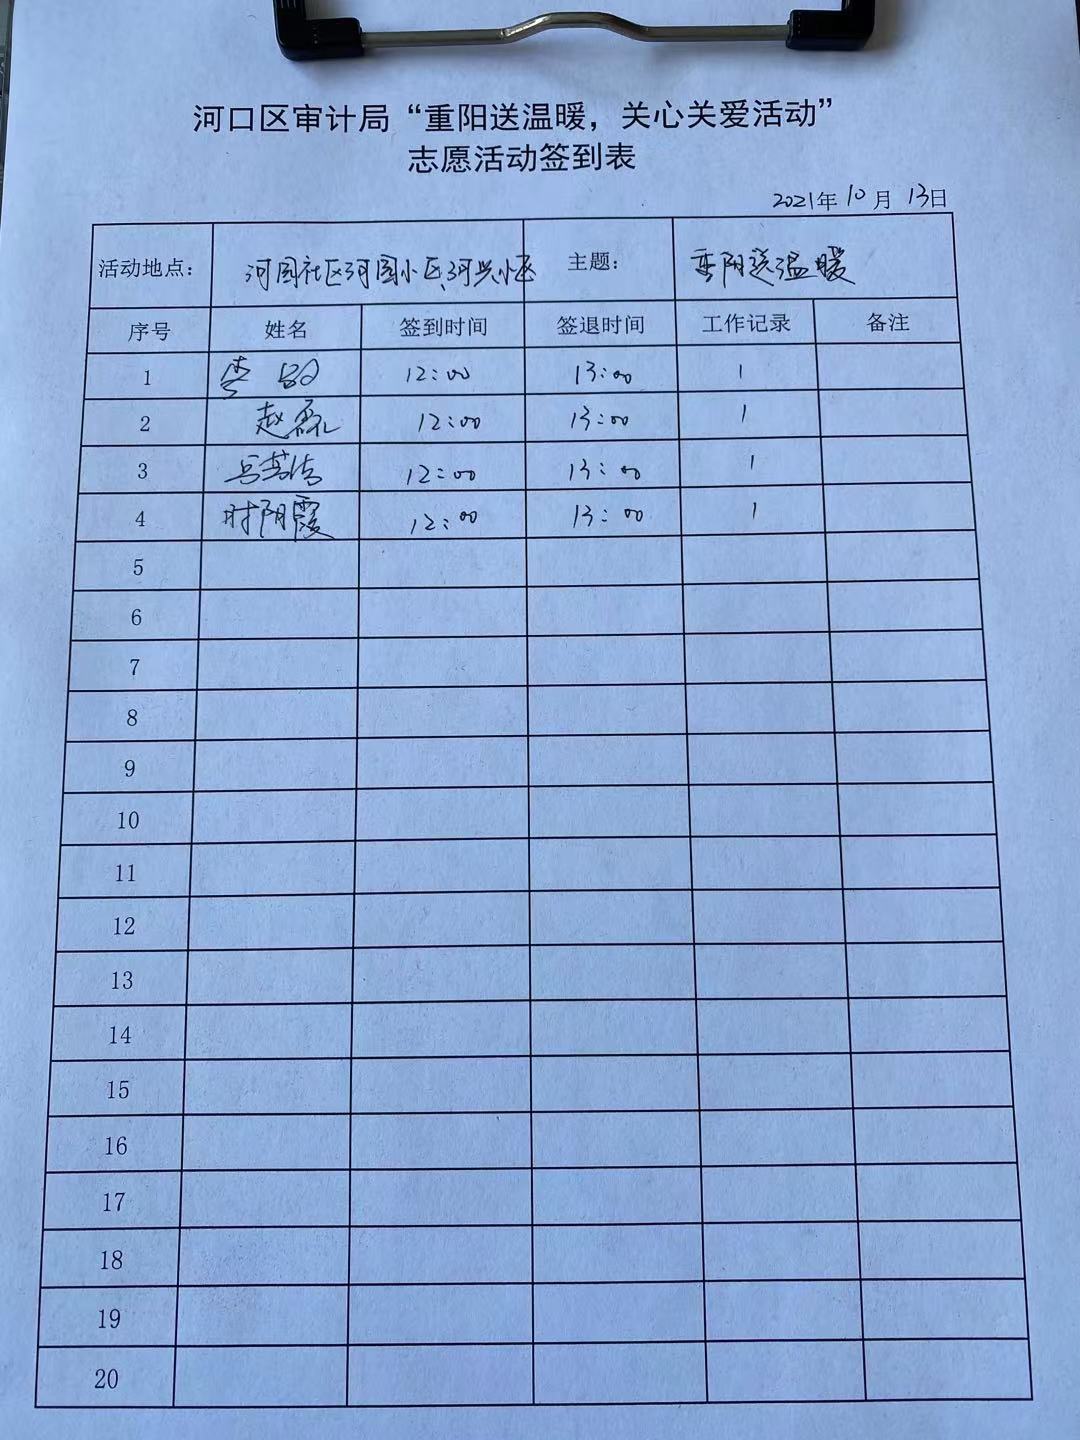 河口区审计局“重阳送温暖，关心关爱活动”
志愿活动签到表
2021年10月13日
活动地点： 河园社区河园小区、河兴小区 主题： 重阳送温暖
序号 姓名 签到时间 签退时间 工作记录 备注
1 李 12:00 13:00 1
2 赵磊 12:00 13:00 1
3 12:00 13:00 1
4 时阳霞 12:00 13:00 1
5
6
7
8
9
10
11
12
13
14
15
16
17
18
19
20